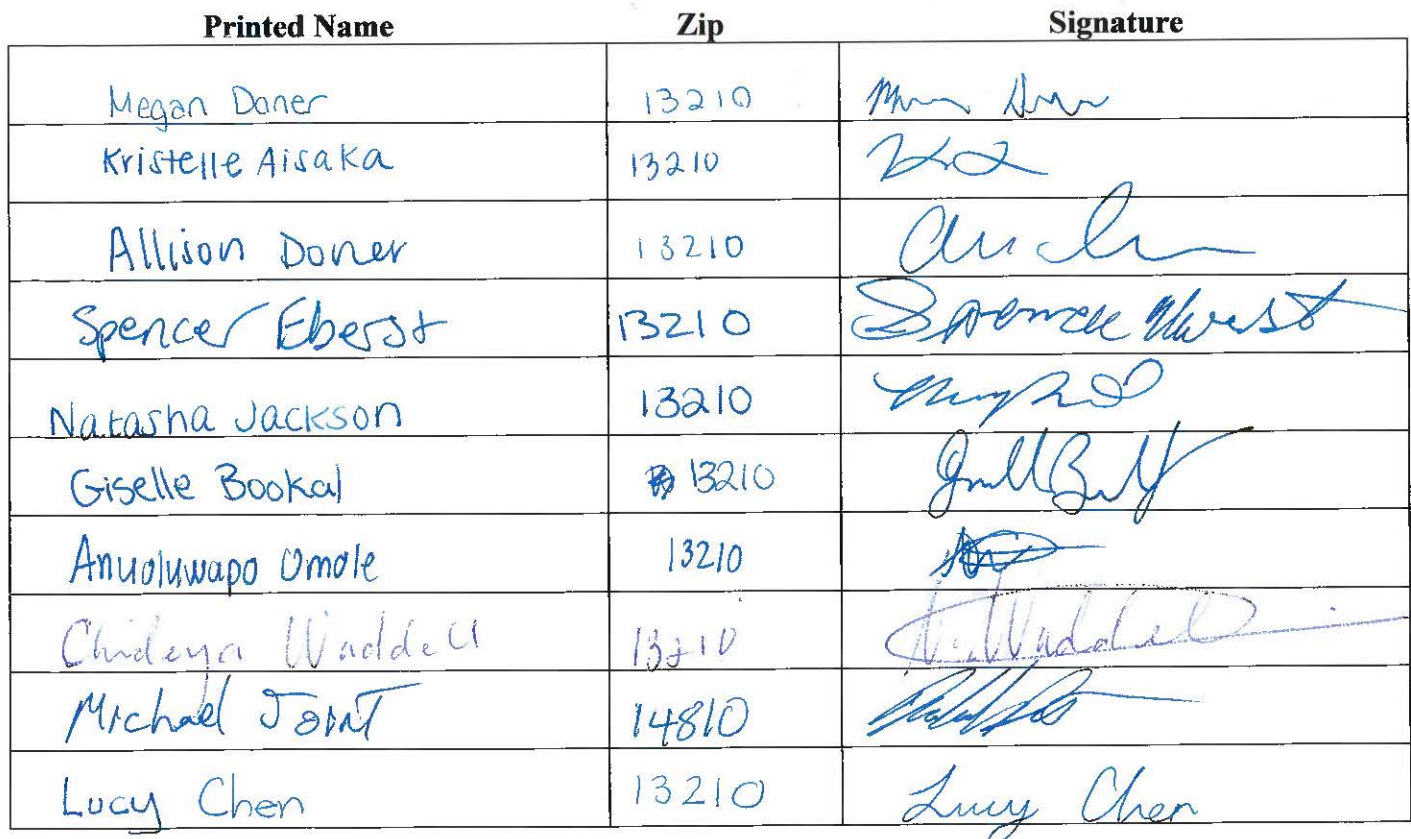 Printed Name Zip Signature
Megan Doner 13210
Kristelle Aisaka 13210
Allison Doner 13210
Spencer Eberst 13210
Natasha Jackson 13210
Giselle Bookal 13210
Anuoluwapo Omole 13210
Chideya Waddell 13210 Waddell
Michael Joint 14810
Lucy Chen 13210 Lucy Chen